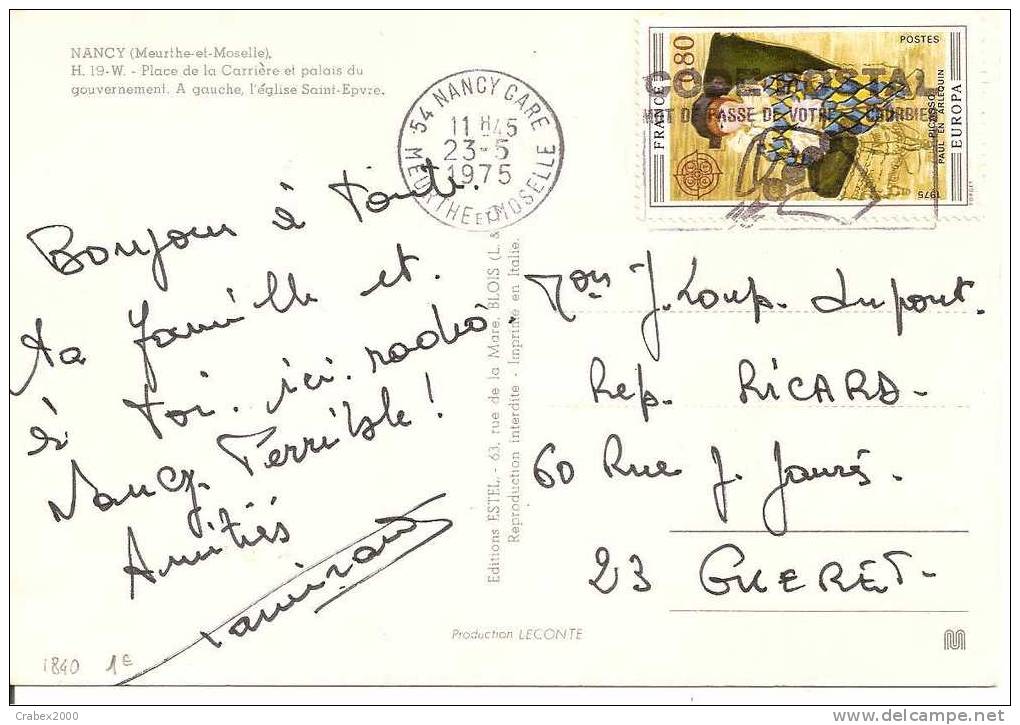 NANCY (Meurthe-et-Moselle).
H. 19-W. - Place de la Carrière et palais du
gouvernement. A gauche, l'église Saint-Epvre.
54 NANCY GARE
11 H45
23-5
1975
MEURTHE ET MOSELLE
CODE POSTAL
MOT DE PASSE DE VOTRE COURRIER
FRANCE 0,80
POSTES
PICASSO
PAUL EN ARLEQUIN
EUROPA
1975
Bonjour à toute
ta famille et
à toi. ici. radio
Nancy. Terrible!
Amitiés
Editions ESTEL, - 63, rue de la Mare, BLOIS (L. &
Reproduction interdite - Imprimé en Italie.
J. Loup. Dupont.
Rep. RICARD-
60 Rue J. Jaurès.
23 GUERET-
Production LECONTE
1840 1€
Crabex2000
delcampe.net